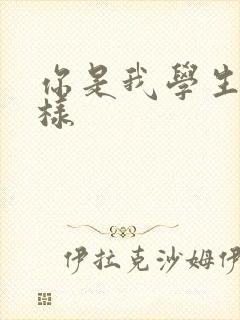 你是我學生
樣
伊拉克沙姆伊